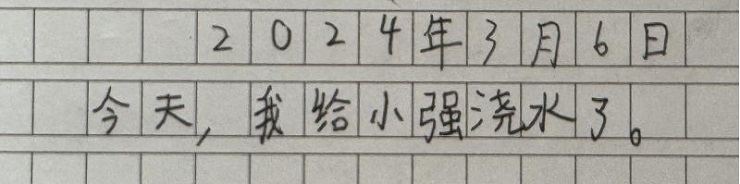 2024年3月6日
今天,我给小强浇水了。